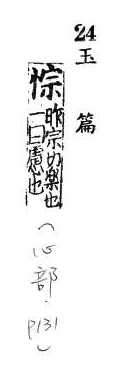 24
玉篇
悰昨宗切樂也
一曰慮也
(心部.
P131)